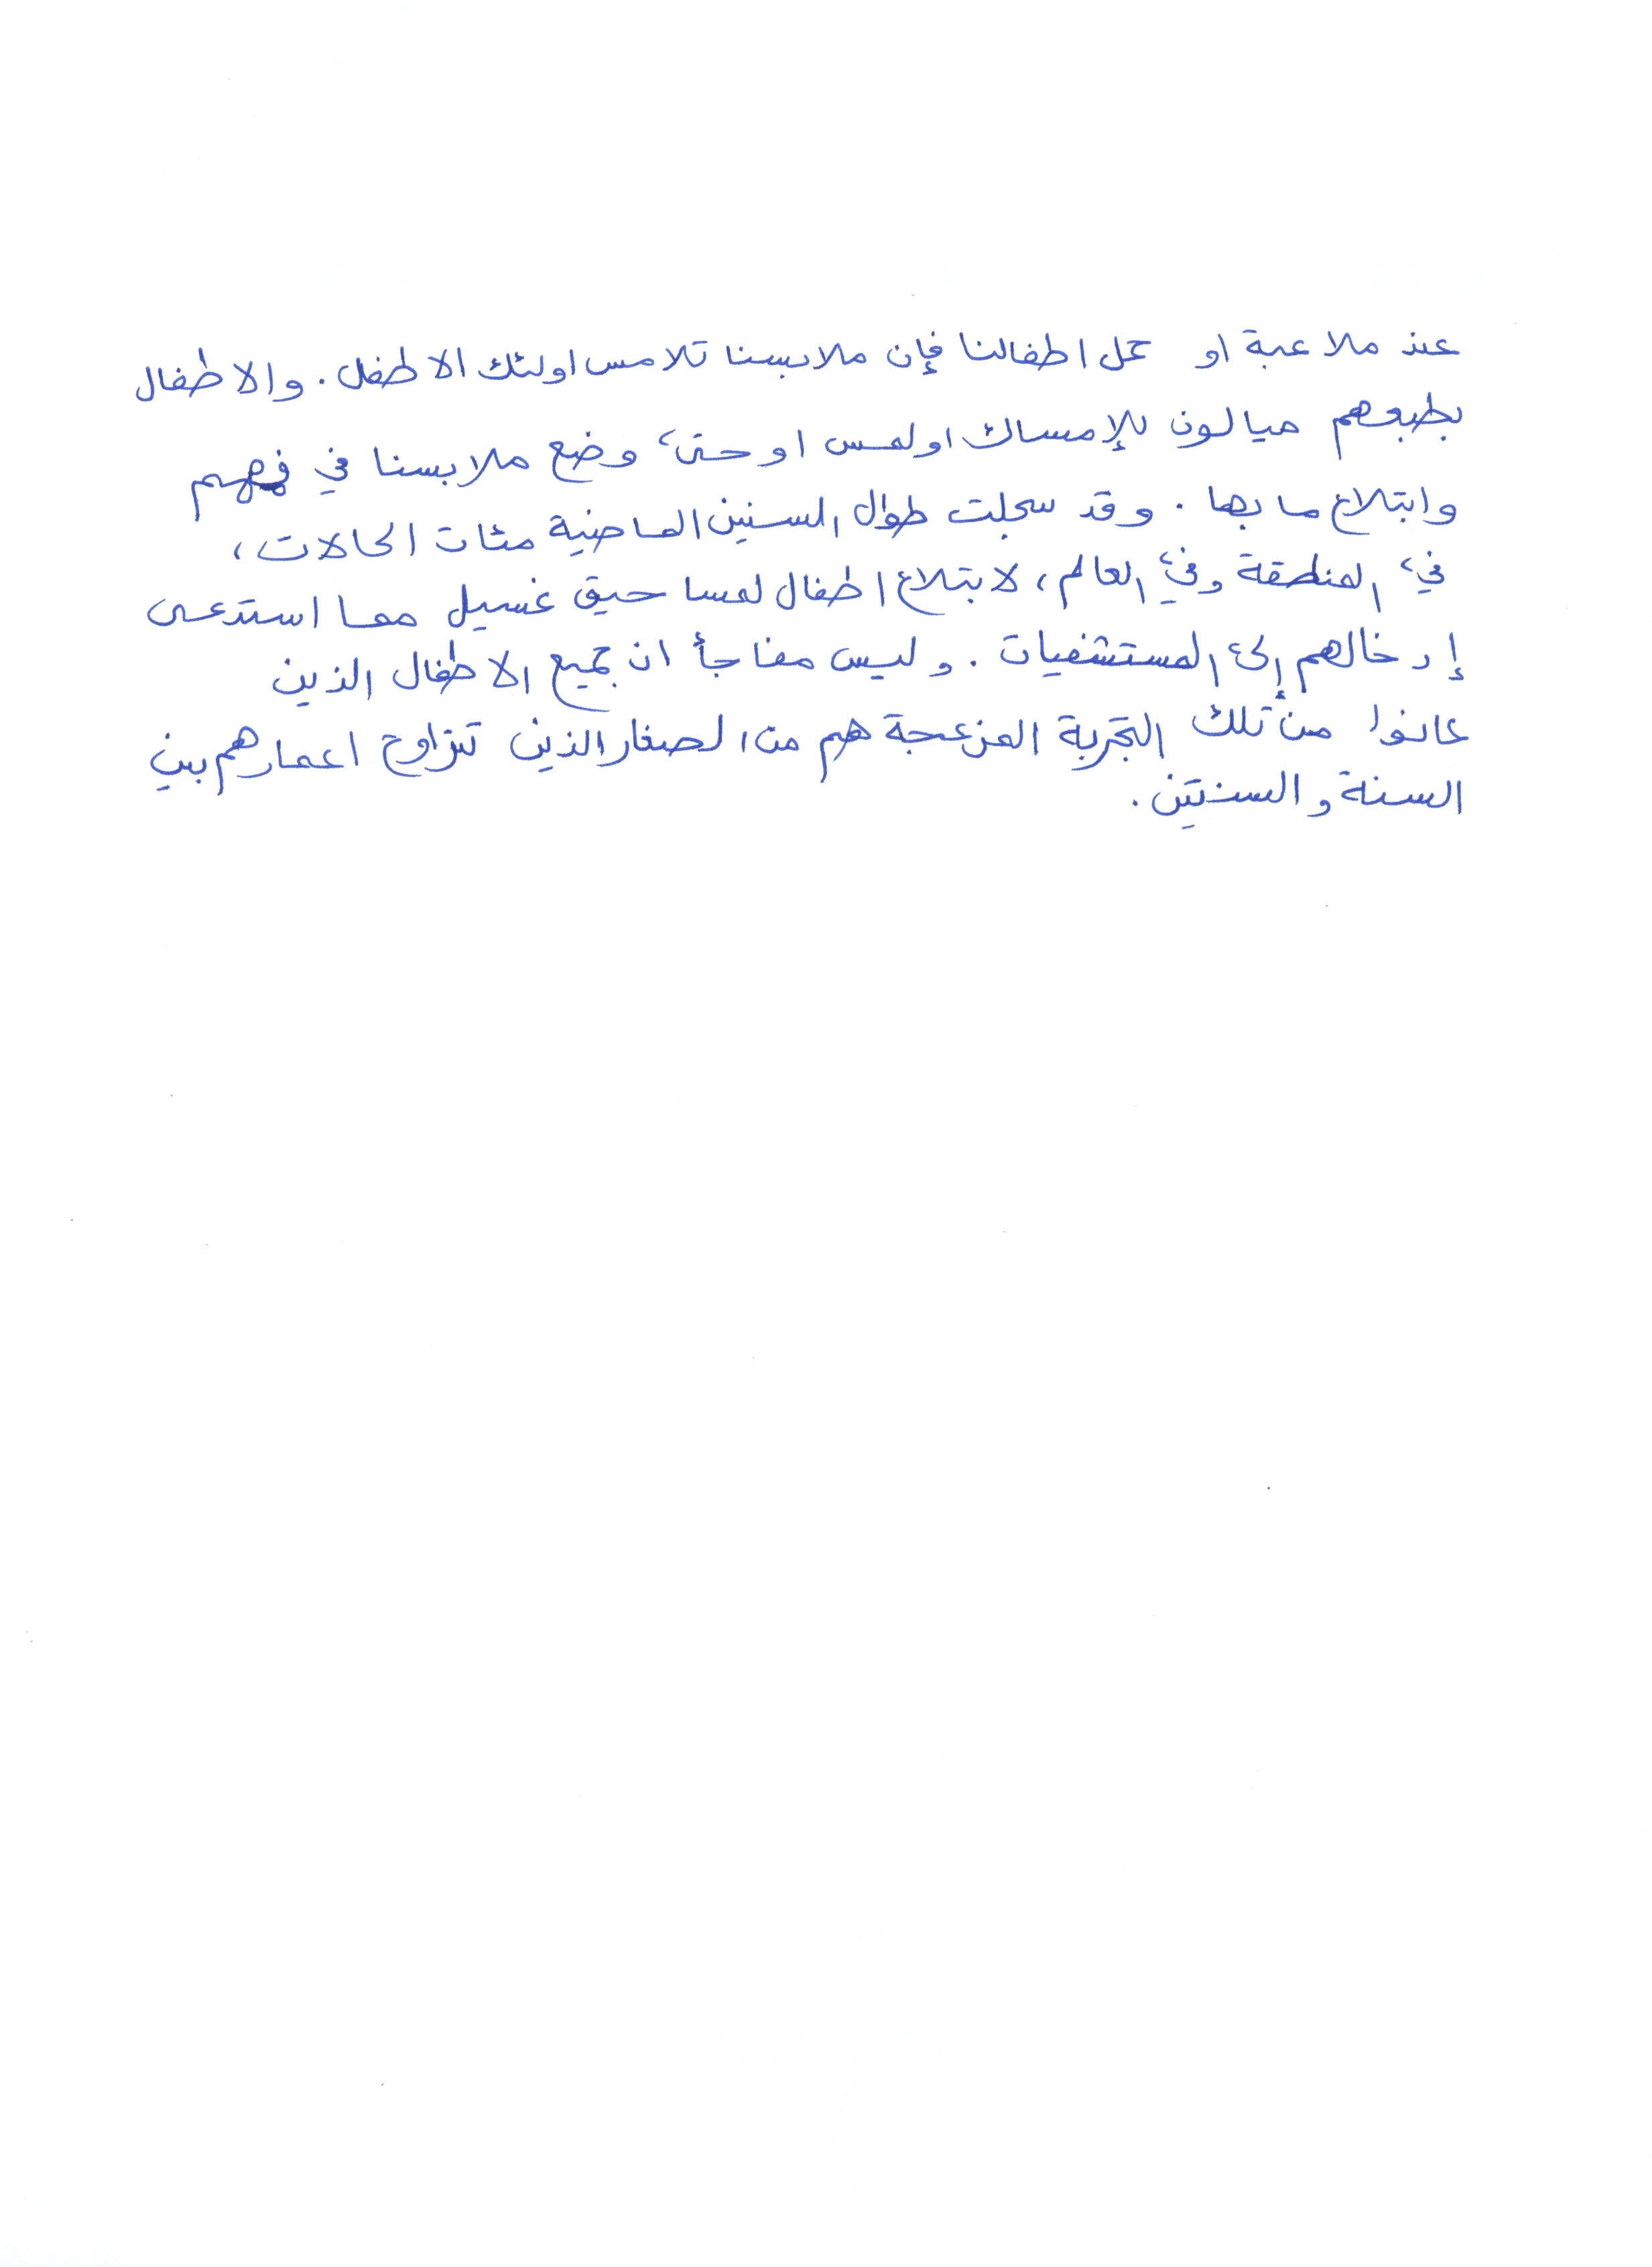 عند ملاعبة او حمل اطفالنا فإن ملابسنا تلامس اولئك الاطفل. والاطفال
بطبعهم ميالون للإمساك او لمس او حتىٰ وضع ملابسنا في فمهم
وابتلاع ما بها. وقد سجلت طوال السنين الماضية مئات الحالات،
في المنطقة وفي العالم، لابتلاع اطفال لمساحيق غسيل مما استدعى
إدخالهم إلى المستشفيات. وليس مفاجأ ان جميع الاطفال الذين
عانوا من تلك التجربة المزعجة هم من الصغار الذين تتراوح اعمارهم بين
السنة والسنتين.